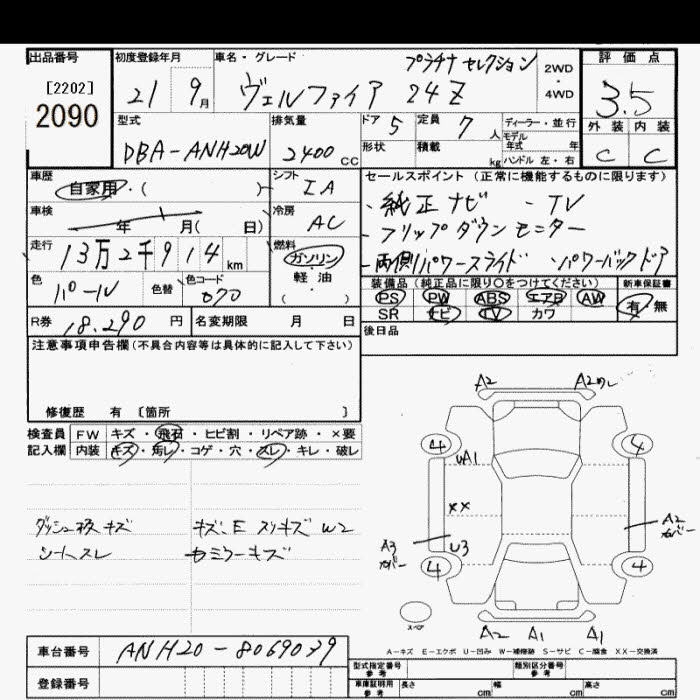 出品番号
[2202]
2090
初度登録年月
21 9月
車名・グレード
プラチナ セレクション
ヴェルファイア 24Z
2WD
・
4WD
評価点
3.5
外装 内装
C C
型式
DBA-ANH20W
排気量
2400 CC
ドア 5
定員 7人
形状
積載 kg
ディーラー・並行
モデル年式 年
ハンドル 左・右
車歴
自家用・( )
シフト
IA
車検
年 月( 日)
冷房
AC
走行
13万2千914 km
燃料
ガソリン
軽・油
( )
色
パール
色替
色コード
070
R券 18,290 円
名変期限 月 日
セールスポイント(正常に機能するものに限ります)
・純正ナビ ・TV
・フリップダウンモニター
・両側パワースライド ・パワーバックドア
装備品(純正品に限り○をつけてください)
新車保証書
PS PW ABS エアB AW
SR ナビ TV カワ
有・無
後日品
注意事項申告欄(不具合内容等は具体的に記入して下さい)
修復歴 有 [箇所 ]
検査員
記入欄
FW キズ・飛石・ヒビ割・リペア跡・×要
内装 キズ・汚レ・コゲ・穴・スレ・キレ・破レ
ダッシュ板キズ
シートスレ
キズ、E スリキズ W2
カミラーキズ
A2
4 4
UA1
XX
A3
カバー
U3
A2
カバー
4 4
スペア
A2 A1 A1
A-キズ E-エクボ U-凹み W-補修跡 S-サビ C-腐食 XX-交換済
車台番号
ANH20-8069039
登録番号
型式指定番号
参考
類別区分番号
参考
車庫証明用
参考
長さ cm
幅 cm
高さ cm